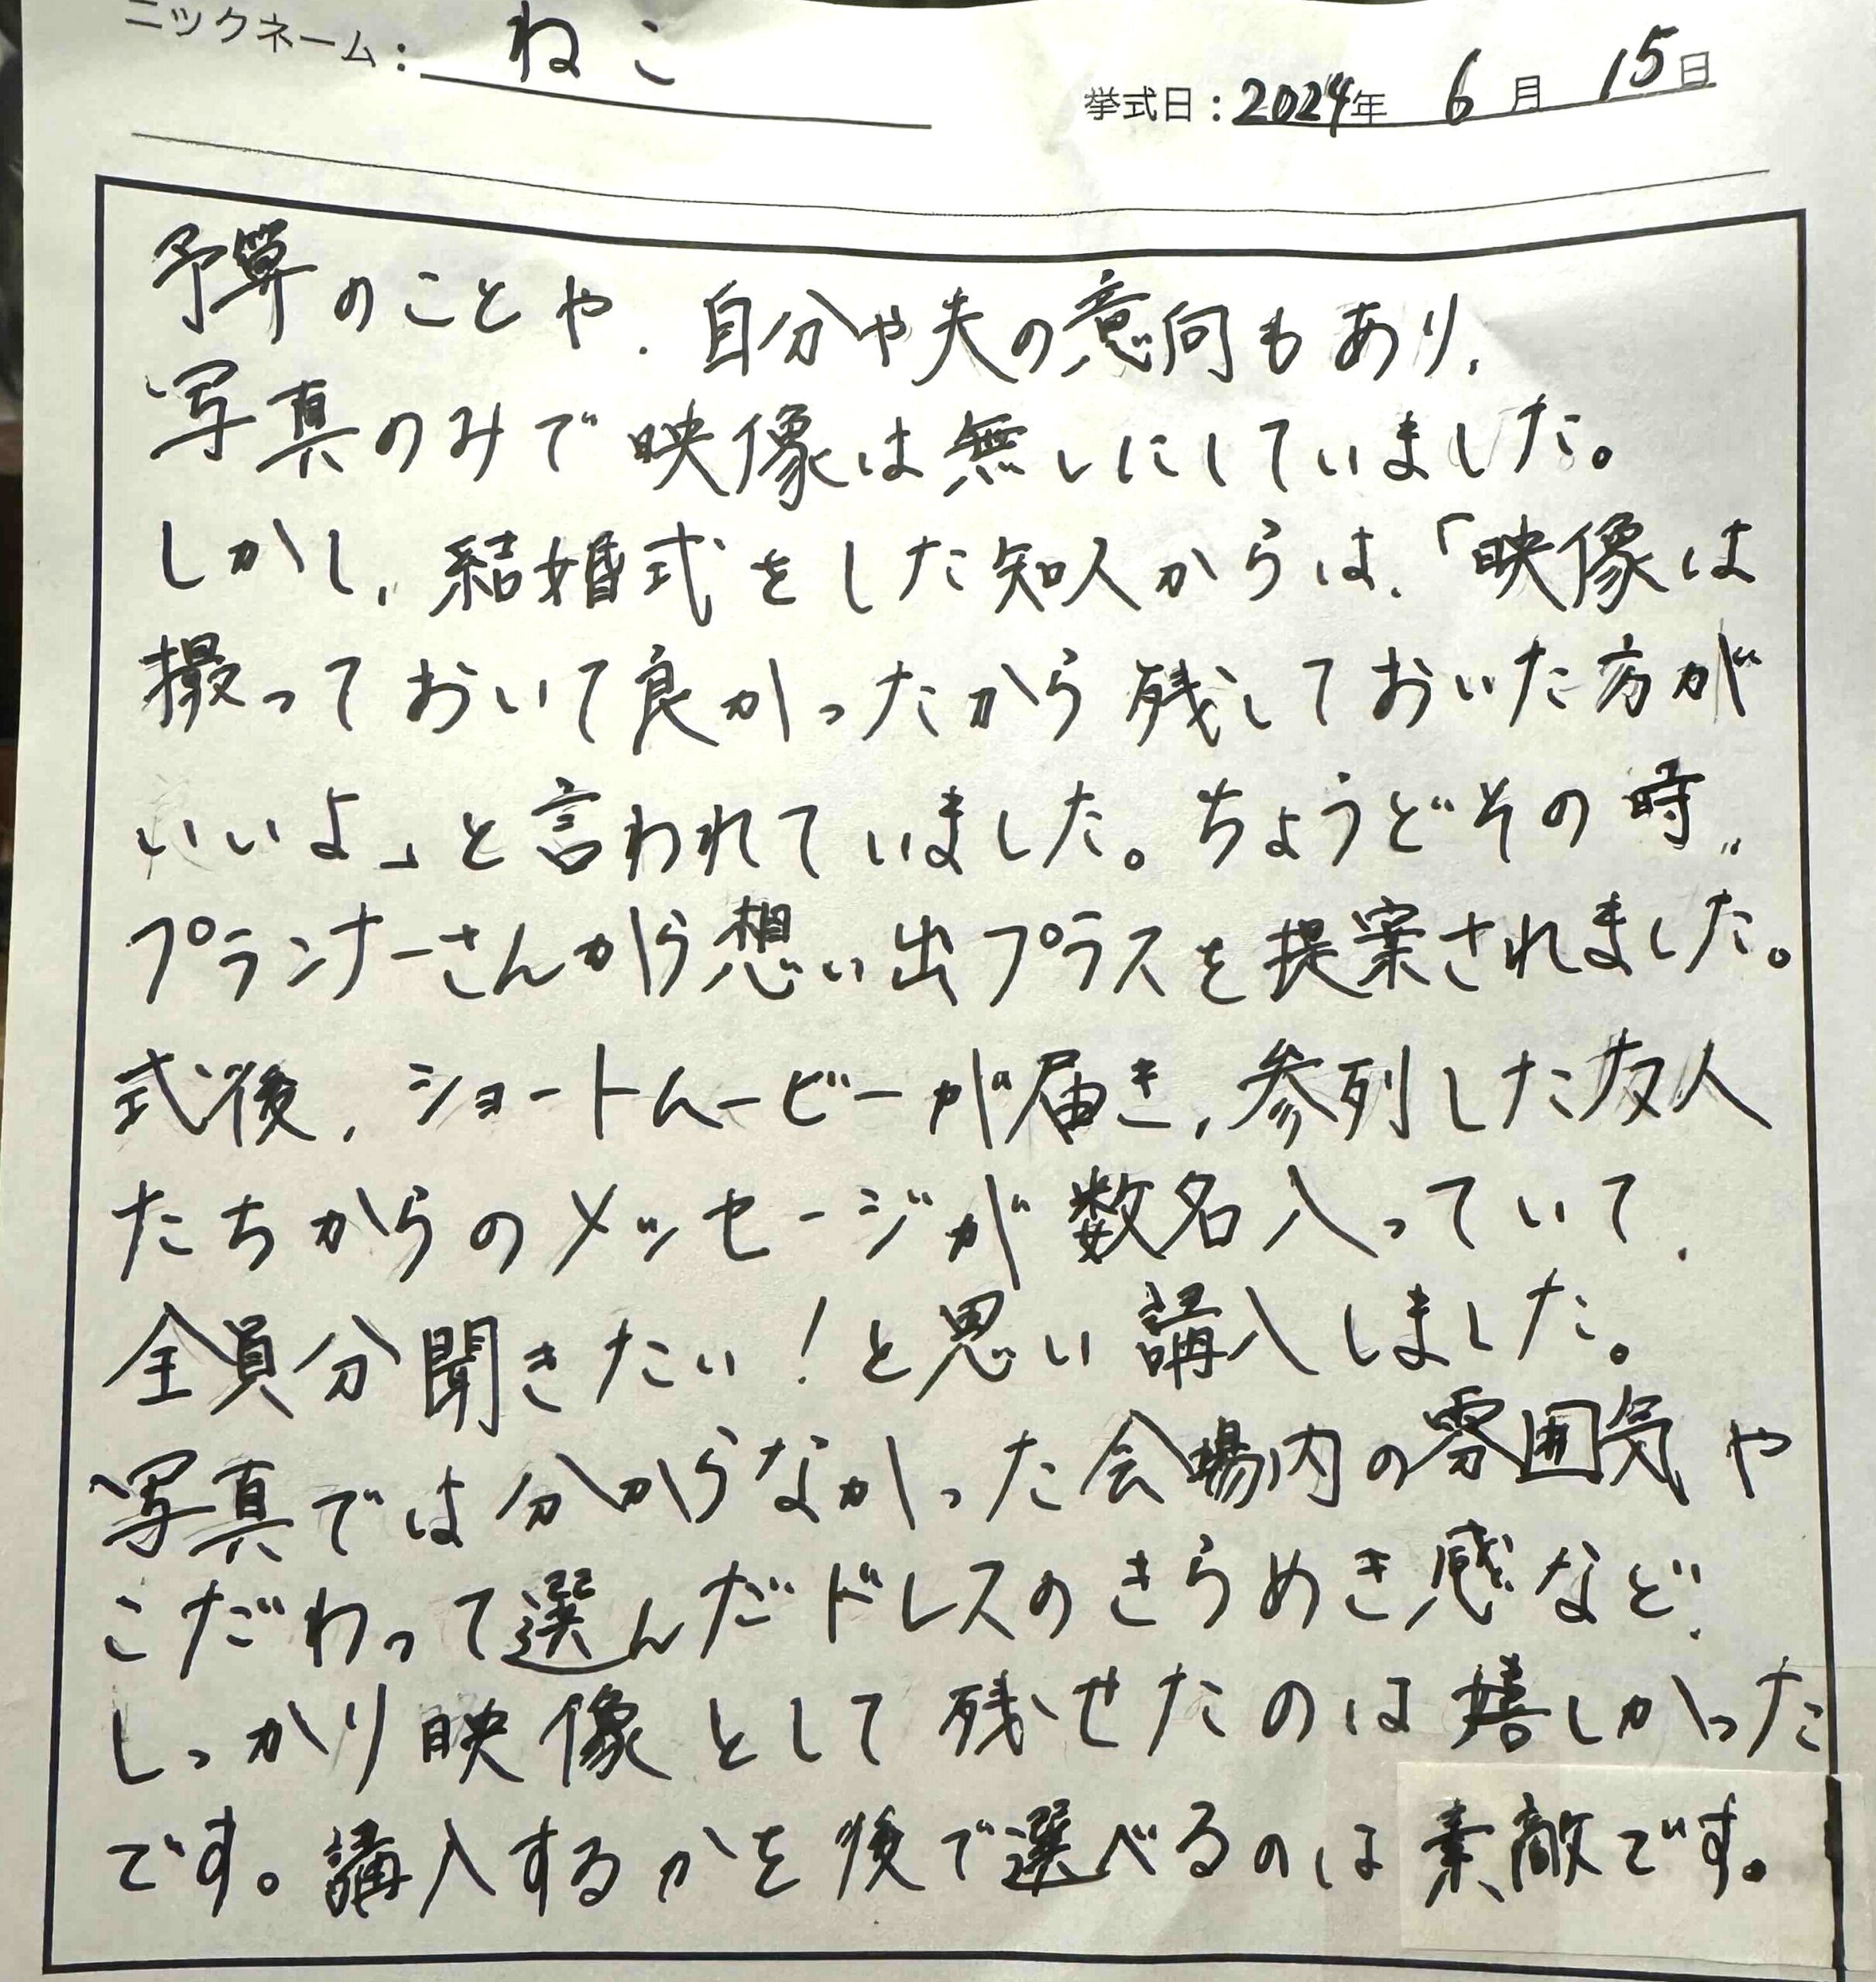 ニックネーム: ねこ
挙式日:2024年 6月 15日
予算のことや、自分や夫の意向もあり、
写真のみで映像は無しにしていました。
しかし、結婚式をした知人からは、「映像は
撮っておいて良かったから残しておいた方が
いいよ」と言われていました。ちょうどその時、
プランナーさんから想い出プラスを提案されました。
式後、ショートムービーが届き、参列した友人
たちからのメッセージが数名入っていて、
全員分聞きたい!と思い講入しました。
写真では分からなかった会場内の雰囲気や
こだわって選んだドレスのきらめき感など、
しっかり映像として残せたのは嬉しかった
です。講入するかを後で選べるのは素敵です。